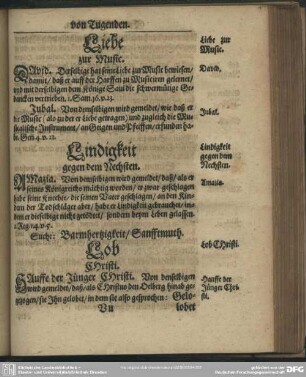 von Tugenden.
Liebe
zur Music.
David. Derselbige hat seine Liebe zur Music bewiesen/
damit/ daß er auff der Harffen zu Musiciren gelernet/
und mit derselbigen dem König Saul die schwermütige Ge-
dancken vertrieben. 1. Sam. 16. v. 23.
Jubal. Von demselbigen wird gemeldet/ wie daß er
die Music/ als zu der er Liebe getragen/ und zugleich die Mu-
sicalische Instrument/ an Geigen und Pfeiffen/ erfunden ha-
be. Gen. 4. v. 21.
Lindigkeit
gegen dem Nechsten.
Amazia. Von demselbigen wird gemeldet/ daß/ als er
seines Königreichs mächtig worden/ er zwar geschlagen
habe seine Knechte/ die seinen Vater geschlagen/ an den Kin-
dern der Todschläger aber/ habe er Lindigkeit gebrauchet/ in-
dem er dieselbige nicht getödtet/ sondern beym Leben gelassen.
2. Reg. 14. v. 5.
Suche: Barmhertzigkeit/ Sanfftmuth.
Lob
Christi.
Hauffe der Jünger Christi. Von denselbigen
wird gemeldet/ daß/ als Christus den Oelberg hinab ge-
zogen/ sie Ihn gelobet/ in dem sie also gesprochen: Gelo-
Vu
lobet
Liebe zur
Music.
David.
Jubal.
Lindigkeit
gegen dem
Nechsten.
Amazia.
Lob Christi.
Hauffe der
Jünger Chri-
sti.